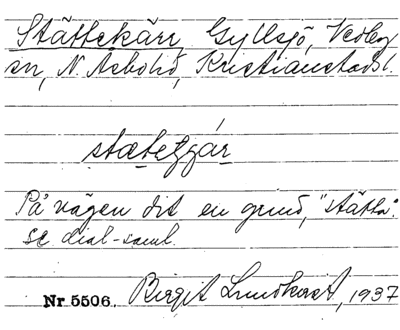 Stättekärr, Gyllsjö, Vedby
sn, N. Åsbohd, Kristianstads l.
stætet̯gár
På vägen dit en grind, "stätta".
se dial-saml.
Nr 5506. Birgit Lundkvist, 1937